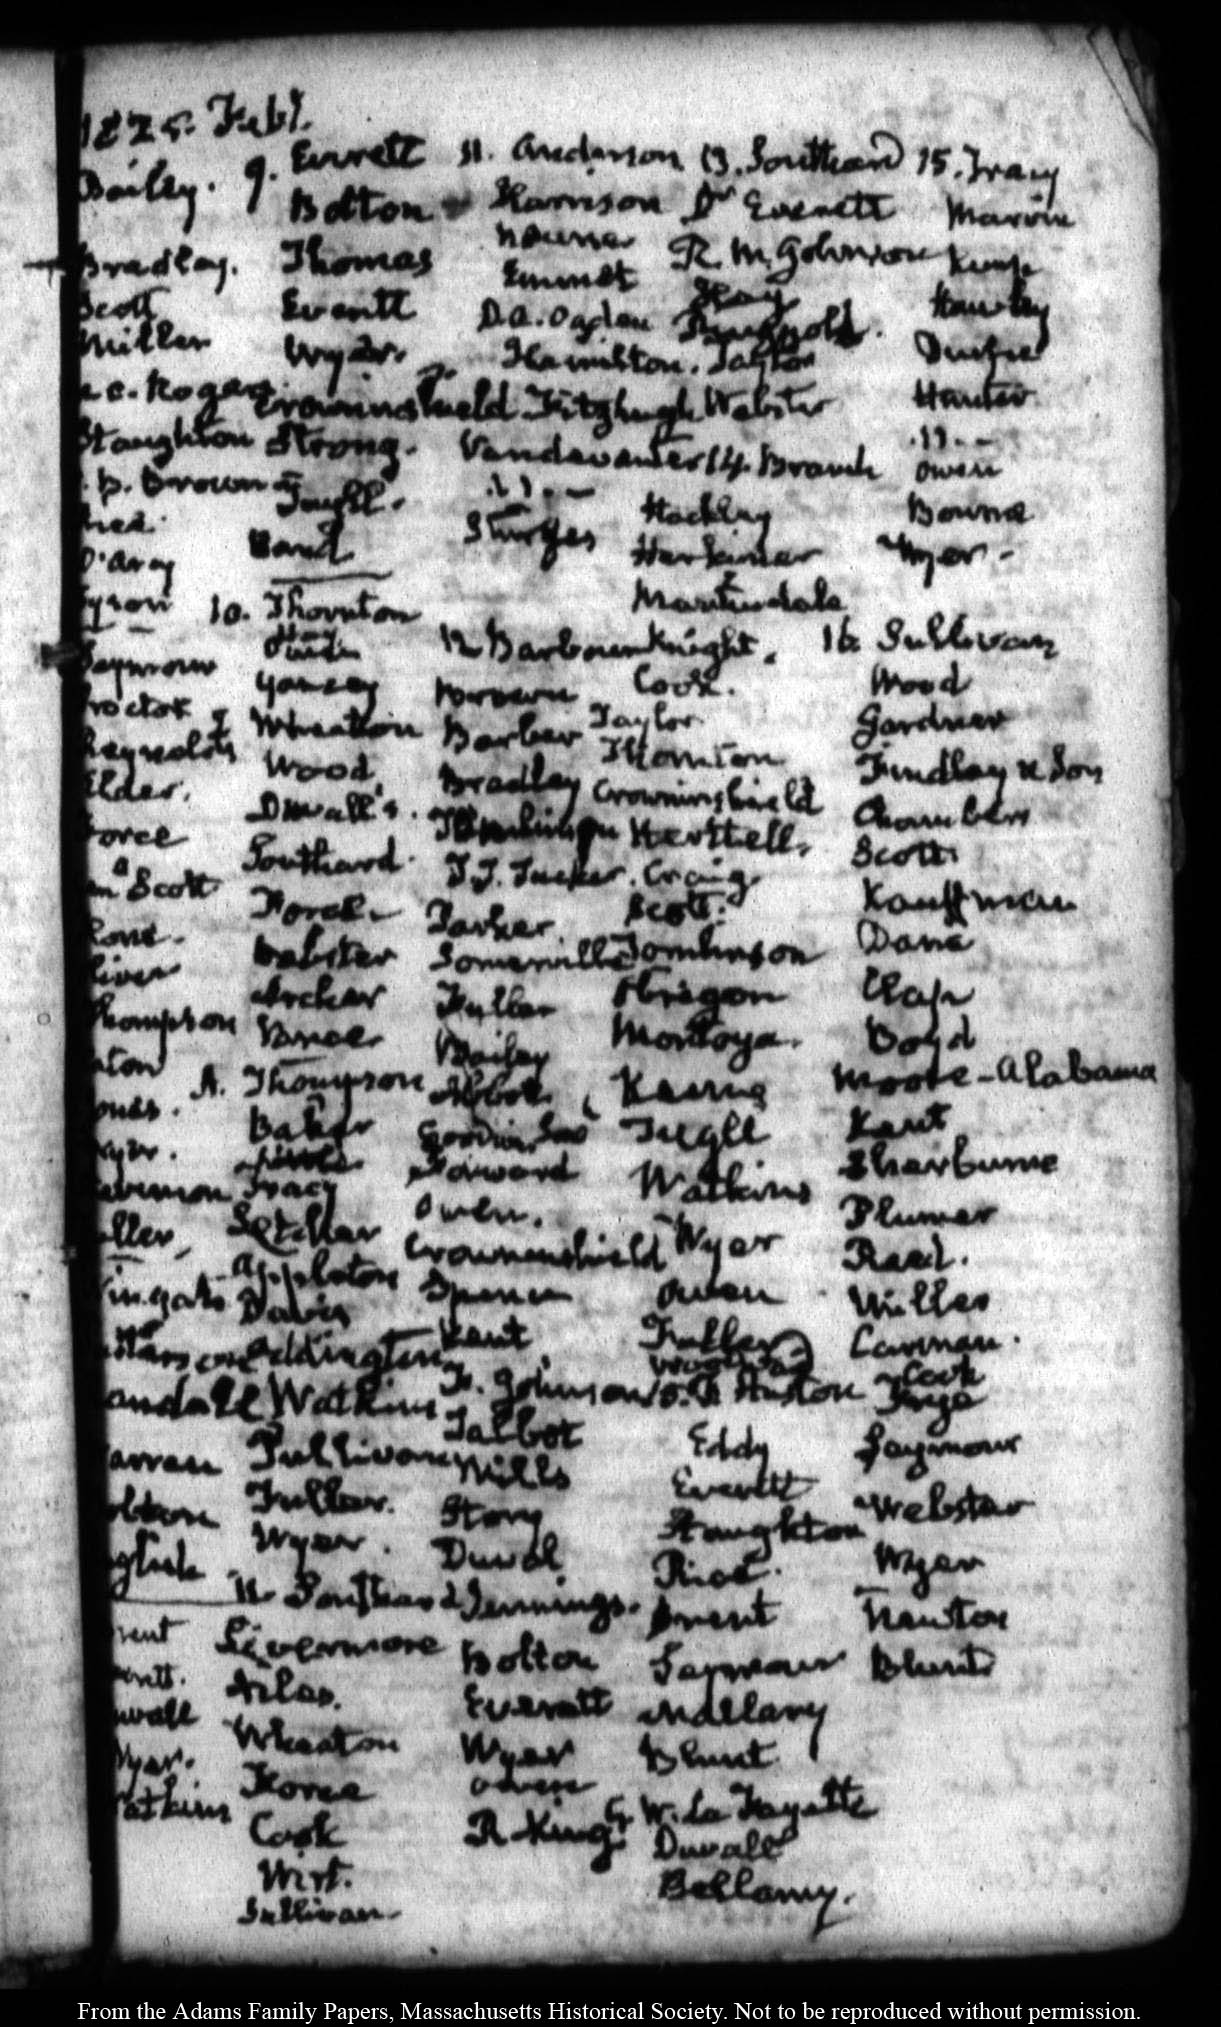 1825. Feby.
Bailey.
Bradley.
Scott
Miller
Rogers
Staughton
Brown
D'Arcy
Tyson
Seymour
Proctor
Reynolds
Elder.
Force
Scott
Rone.
Thompson
Jones.
Wyer.
Wingate
Randall
Warren
Bolton
English
Duvall
Wyer.
Watkins
9. Everett
Bolton
Thomas
Everett
Wyer.
Crowninshield
Strong.
Band
10. Thornton
Hay
Yancey
Wheaton
Wood
Duvall's.
Southard
Webster
Archer
Thompson
Baker
Little
Tracy
Letcher
Appleton
Davis
Addington
Watkins
Sullivan
Fuller.
Wyer.
11. Southard
Livermore
Wheaton
Force
Cook
Wirt.
Sullivan
11. Anderson
Harrison
Nourse
Emmet
D. A. Ogden
Hamilton.
Fitzhugh
Vandeventer
Sturges
12 Barbour
Barber
Bradley
Tomlinson
T. T. Tucker.
Parker.
Somerville
Fuller
Bailey
Abbot
Goodwin
Forward
Owen.
Crowninshield
Spencer
Kent
F. Johnson
Talbot
Mills
Story
Duval
Jennings.
Bolton
Everett
Wyer
Owen
R. King
13. Southard
Dr Everett
R. M. Johnson
Hay
Ringgold.
Taylor
Webster
14. Branch
Hackley
Herkimer
Martindale
Knight.
Cook.
Taylor
Thornton
Crowninshield
Herttell.
Craig
Scott.
Tomlinson
Obregon
Montoya.
Kearney
Watkins
Wyer
Owen
Fuller
15. Huston
Eddy
Everett
Staughton
Rice.
Brent
Seymour
Mallary
Blunt
G. W. La Fayette
Duvall
Bellamy.
15. Tracy
Marvin
Kemp
Hawley
Hunter
Owen
Bourne
Wyer.
16. Sullivan
Wood
Gardner
Findlay & Son
Chambers
Scott
Kauffman
Dana
Clap
Boyd
Moore - Alabama
Kent
Sherburne
Plumer
Reed.
Miller
Cook
Frye
Seymour
Webster
Wyer
Newton
Blunt
From the Adams Family Papers, Massachusetts Historical Society. Not to be reproduced without permission.